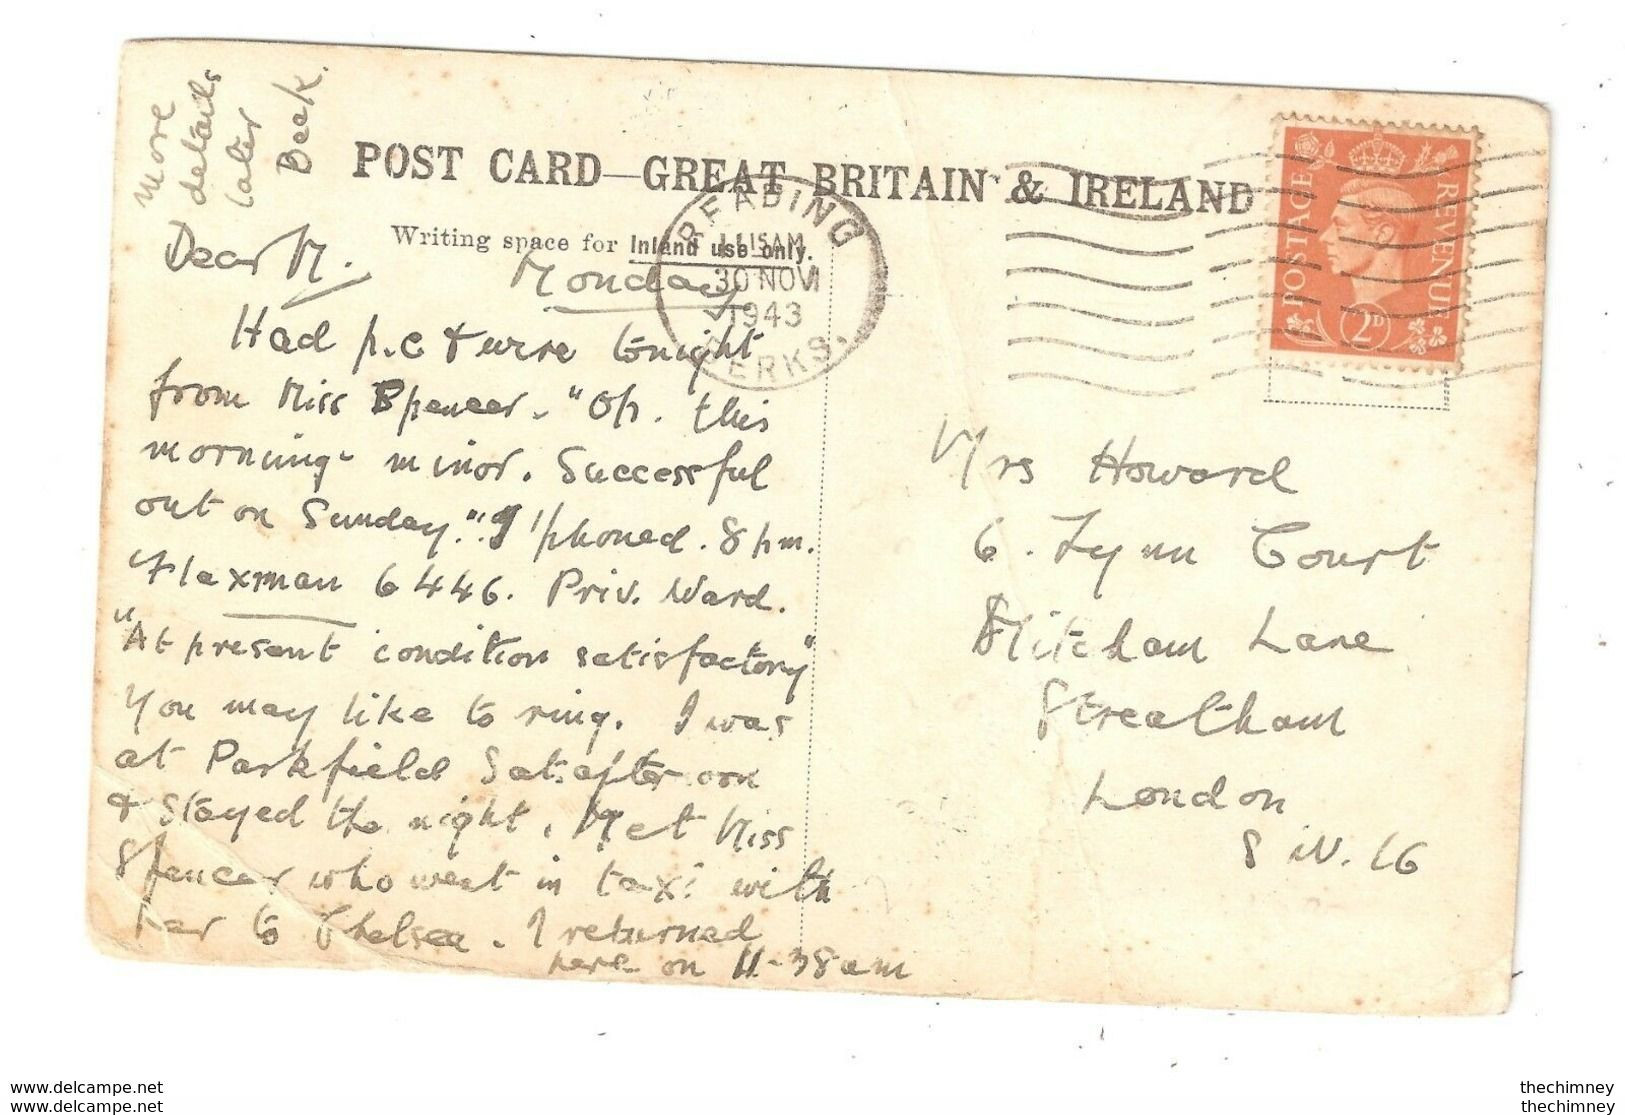 more
details
later
Beek.
POST CARD—GREAT BRITAIN & IRELAND
Writing space for Inland use only.
READING
11 15 AM
30 NOV
1943
BERKS.
POSTAGE
REVENUE
2D
Dear M.
Monday
Had p.c & wire tonight
from Miss Spencer. "Op. this
morning - minor. Successful
out on Sunday." I 'phoned. 8pm.
Flaxman 6446. Priv. Ward.
"At present condition satisfactory"
You may like to ring. I was
at Parkfield Sat. afternoon
& stayed the night. Met Miss
Spencer who went in taxi with
her to Chelsea. I returned
here on 11-38am
Mrs Howard
6. Lynn Court
Mitcham Lane
Streatham
London
S.W.16
www.delcampe.net
www.delcampe.net
thechimney
thechimney